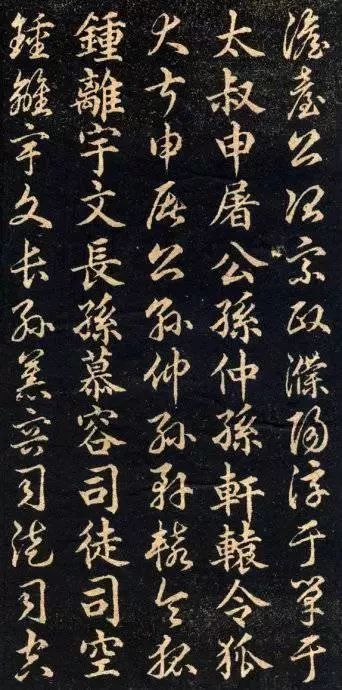 澹臺公冶宗政濮陽淳于單于
太叔申屠公孫仲孫軒轅令狐
太叔申屠公孫仲孫軒轅令狐
鍾離宇文長孫慕容司徒司空
鍾離宇文長孫慕容司徒司空